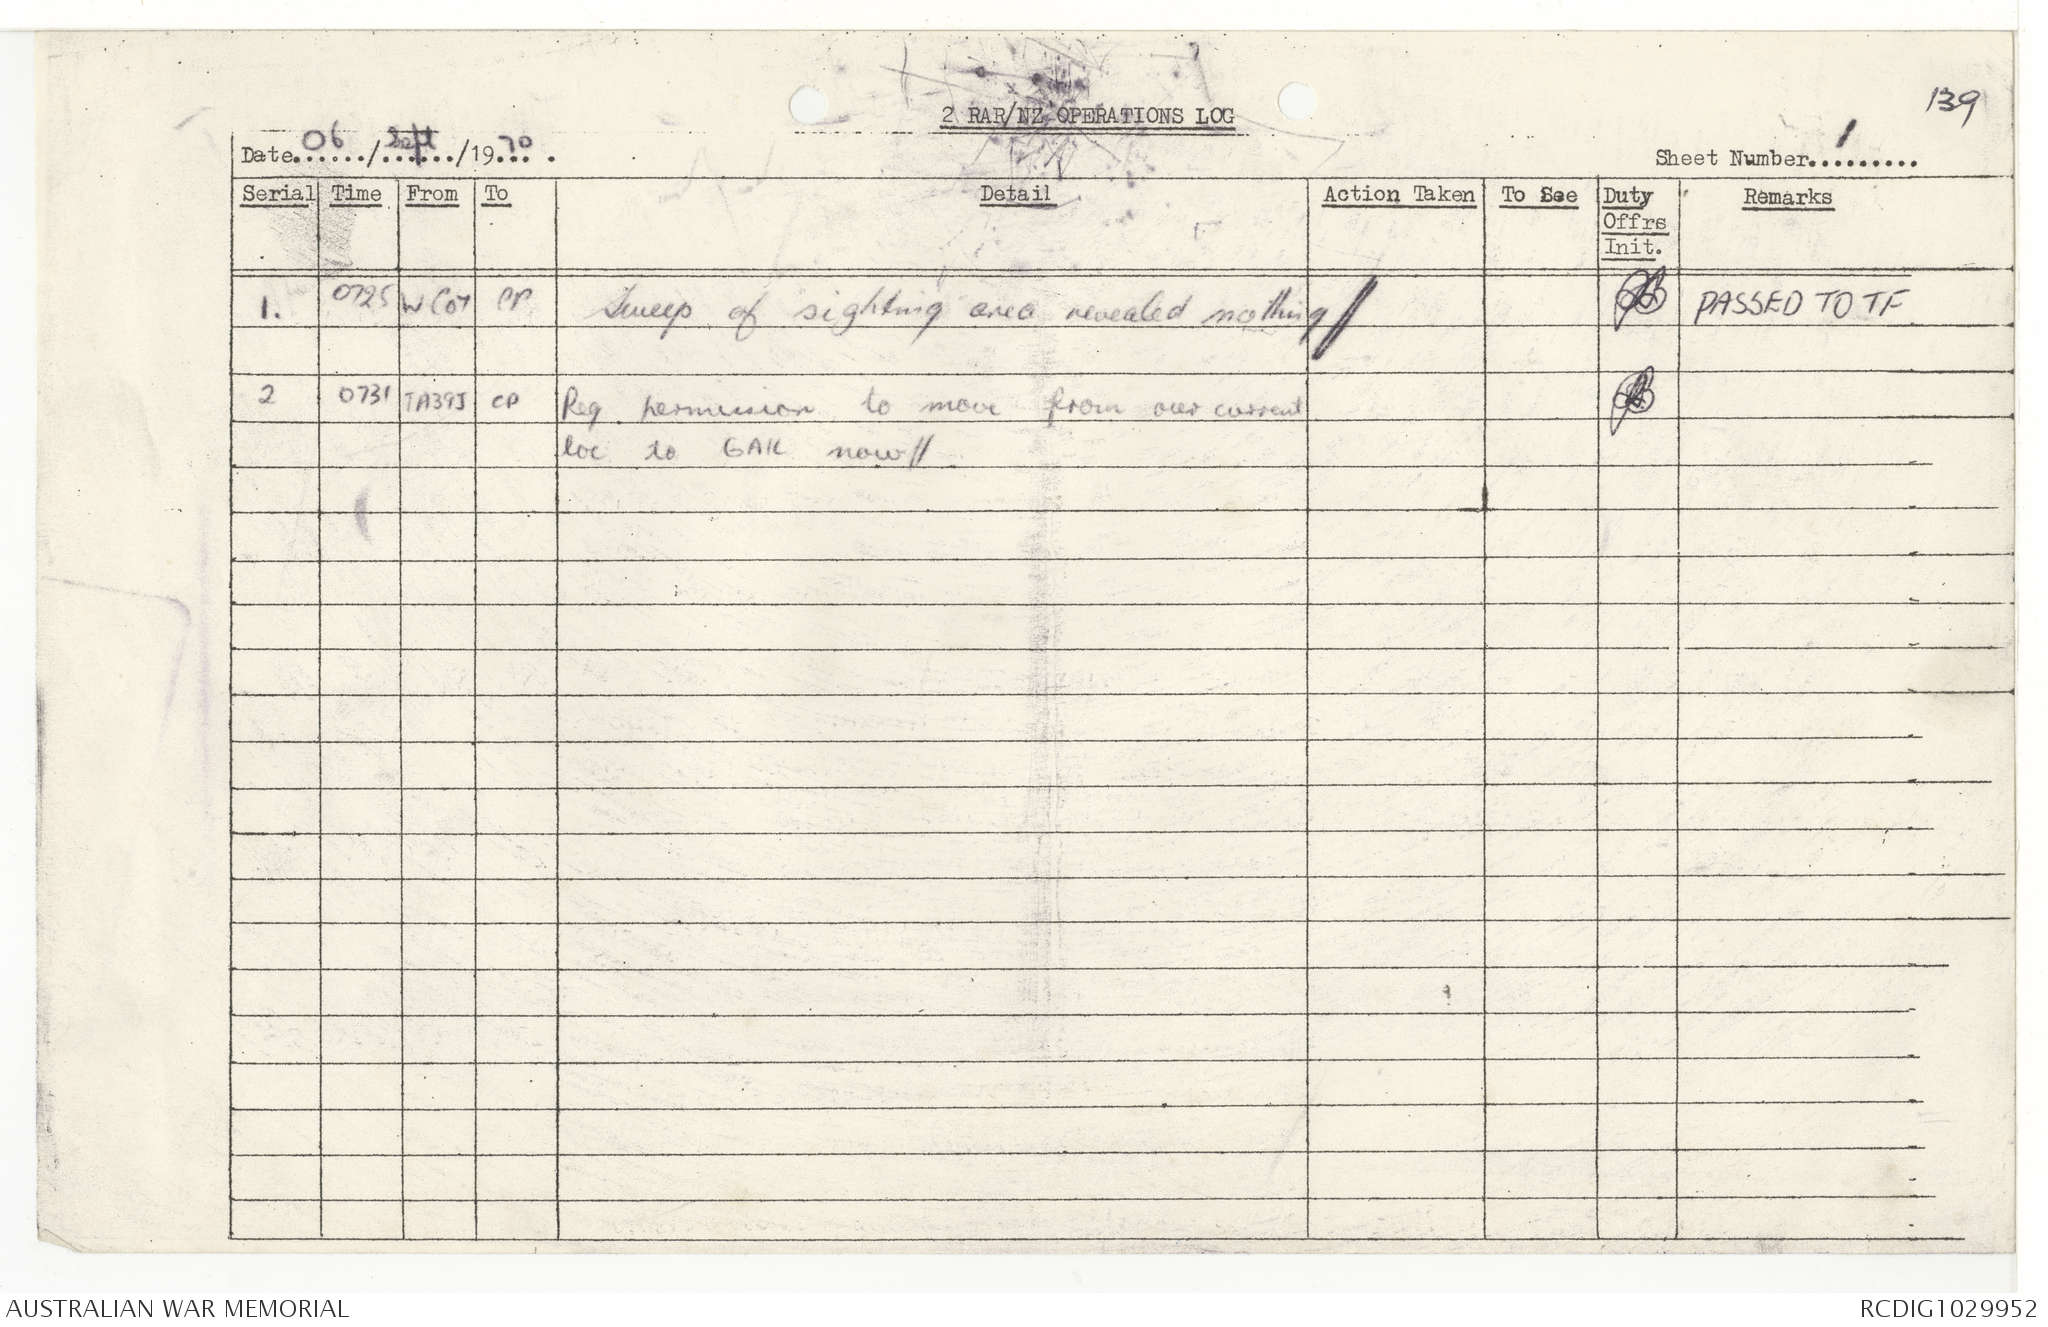 139
2 RAR/NZ OPERATIONS LOG
Date 06/Sept/1970. Sheet Number 1
Serial Time From To Detail Action Taken To See Duty Offrs Init. Remarks
1. 0725 CP Sweep of sighting area revealed nothing// PASSED TO TF
2 0731 TA39J CP Req permission to move from our current
loc to GAIL now//
AUSTRALIAN WAR MEMORIAL RCDIG1029952